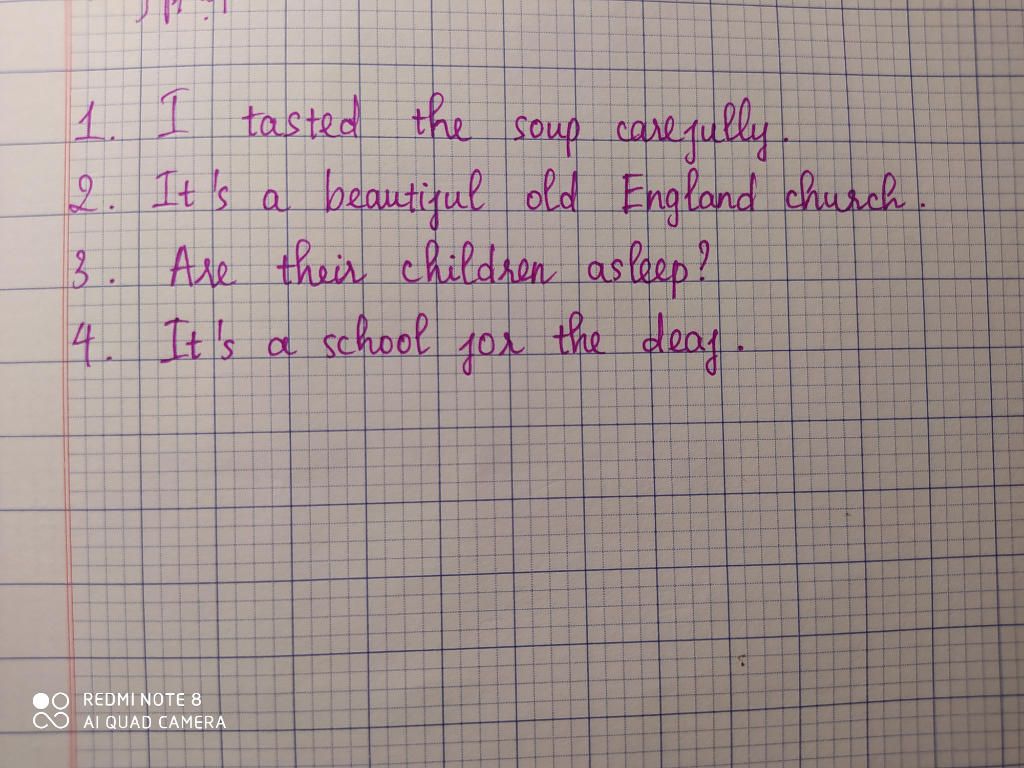 1. I tasted the soup carefully.
2. It's a beautiful old England church.
3. Are their children asleep?
4. It's a school for the deaf.
REDMI NOTE 8
AI QUAD CAMERA